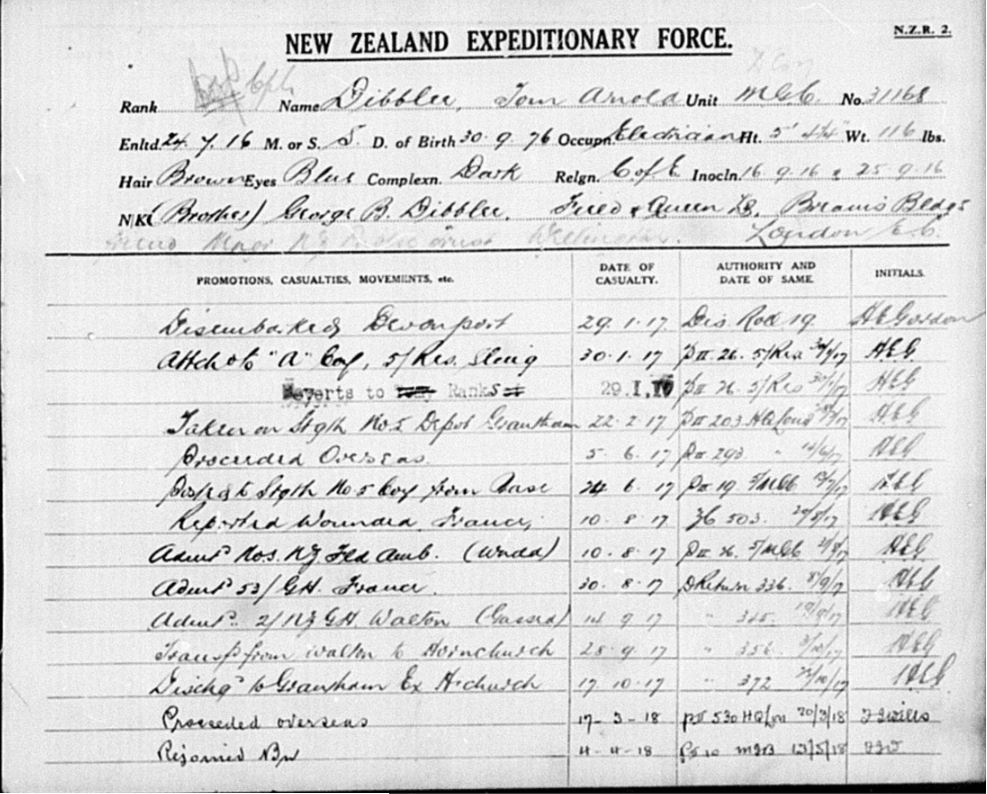 N.Z.R. 2.
NEW ZEALAND EXPEDITIONARY FORCE.
Rank Cpl. Name Dibbler, Tom Arnold Unit M.G.C. No. 31168
Enltd. 24 7. 16 M. or S. S. D. of Birth 30. 9. 76 Occupn. Electrician Ht. 5' 4¼" Wt. 116 lbs.
Hair Brown Eyes Blue Complexn. Dark Relgn. C of E Inocln. 16. 9. 16 & 25. 9. 16
N/K (Brother) George B. Dibbler. Queen Breams Bldgs
Wellington. London E.C.
PROMOTIONS, CASUALTIES, MOVEMENTS, etc. DATE OF CASUALTY. AUTHORITY AND DATE OF SAME. INITIALS.
Disembarked Devonport 29. 1. 17 Dis. Rod 19. HEGordon
Attchd to "A" Coy, 5/Res. Sling 30. 1. 17 PII 26. 5/Res HEG
Reverts to Ranks 29. 1. PII 26. 5/Res HEG
Taken on Stgth No. 5 Depot Grantham 22. 2. 17 PII 203 HEG
Proceeded Overseas. 5. 6. 17 PII 293 " HEG
Posted to Stgth No 5 Coy from Base 24 6. 17 PII 19 HEG
Reported Wounded, France, 10. 8. 17 503. HEG
Admtd No. 3. NZ Fld Amb. (Wndd) 10. 8. 17 PII 26. HEG
Admtd 53/GH. France. 30. 8. 17 DReturn 336. HEG
Admtd. 2/NZGH Walton (Gassed) 14 9 17 " 345. HEG
Transfd from Walton to Hornchurch 28. 9. 17 " 356. HEG
Dischgd to Grantham Ex H-church 17. 10. 17 " 372 HEG
Proceeded overseas 17- 3 - 18 PII 530 HQ 20/3/18
Rejoined Bn 4- 4- 18 13/5/18